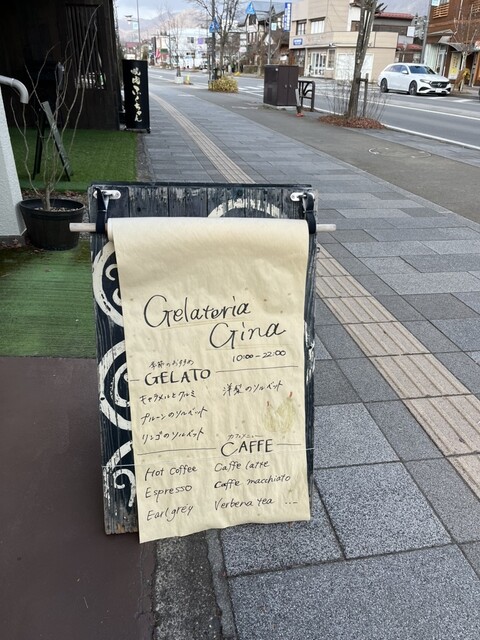 Gelateria
Gina
10:00-22:00
季節のおすすめ
GELATO
キャラメルとクルミ
洋梨のソルベット
プルーンのソルベット
リンゴのソルベット
カフェメニュー
CAFFE
Hot Coffee
Caffe latte
Espresso
Caffe macchiato
Earl grey
Verbena tea ...